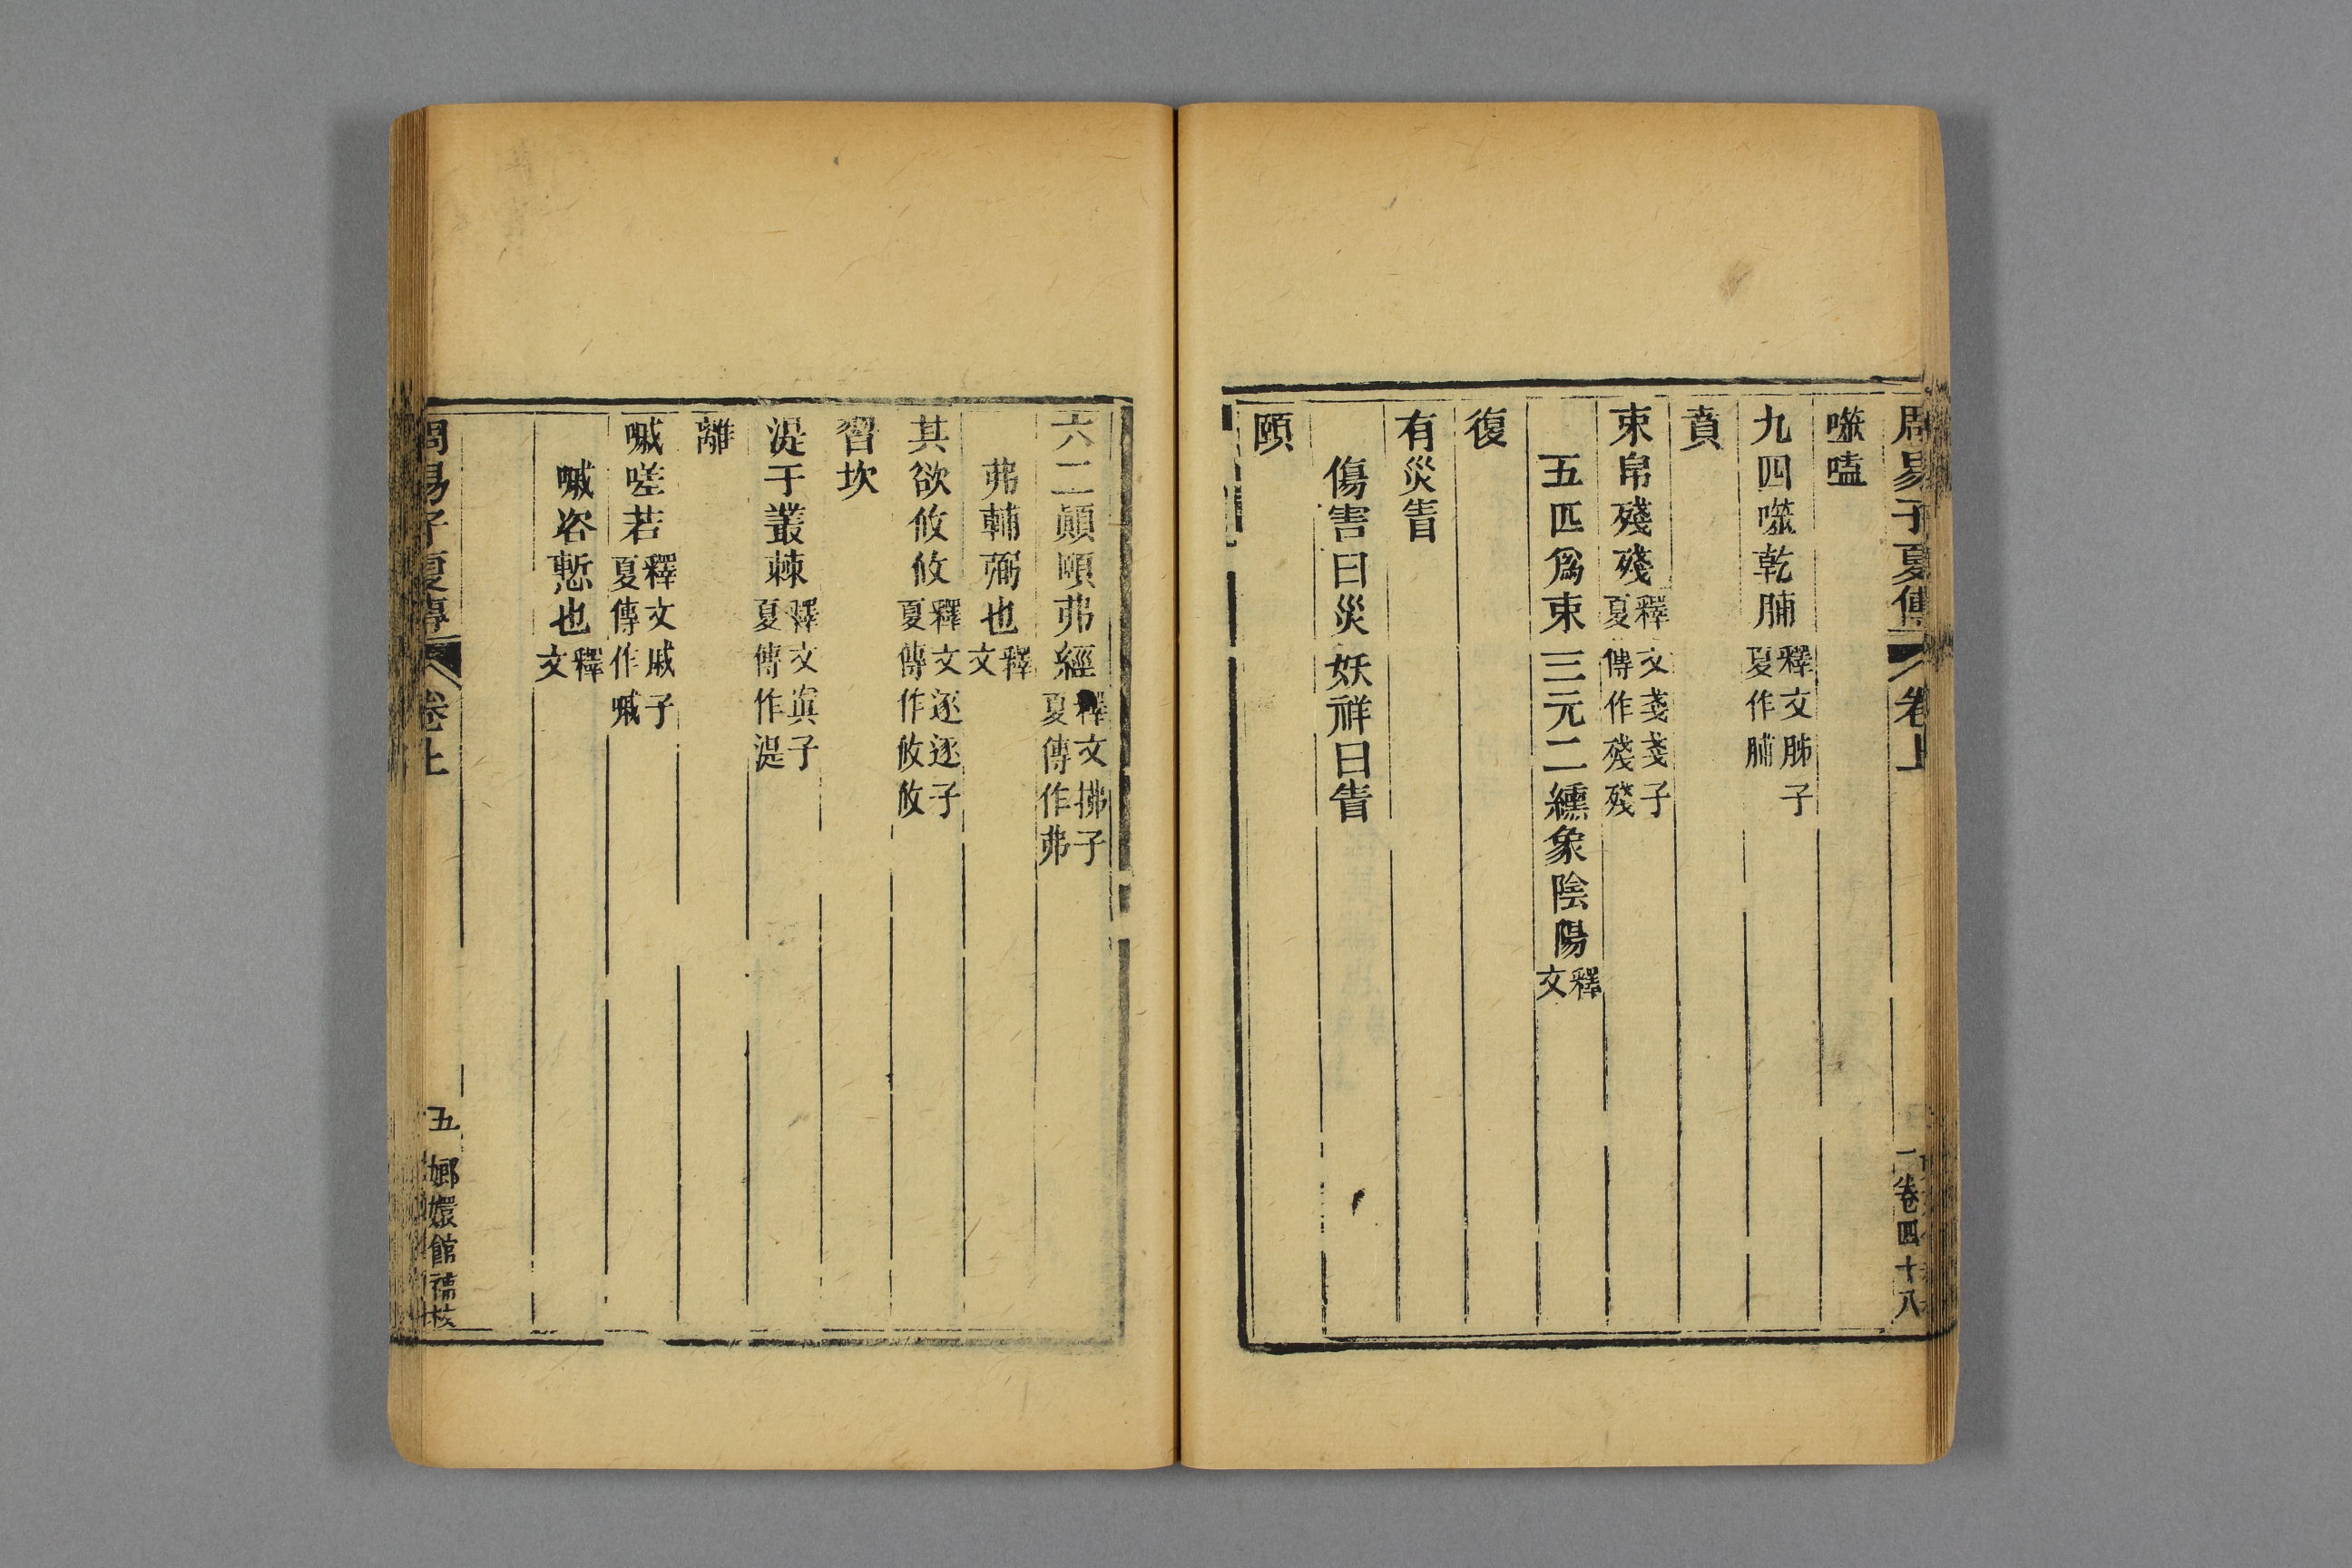 周易子夏傳 卷上
一卷四十八
噬嗑
九四噬乾脯 釋文胏子夏作脯
賁
束帛殘殘 釋文戔戔子夏傳作殘殘
五匹爲束三元二纁象陰陽 釋文
復
有災眚
傷害曰災妖祥曰眚
頤
六二顚頤弗經 釋文拂子夏傳作弗
弗輔弼也 釋文
其欲攸攸 釋文逐逐子夏傳作攸攸
習坎
湜于叢棘 釋文寘子夏傳作湜
離
嘁嗟若 釋文戚子夏傳作嘁
嘁咨慙也 釋文
周易子夏傳 卷上
五 嫏嬛館補校